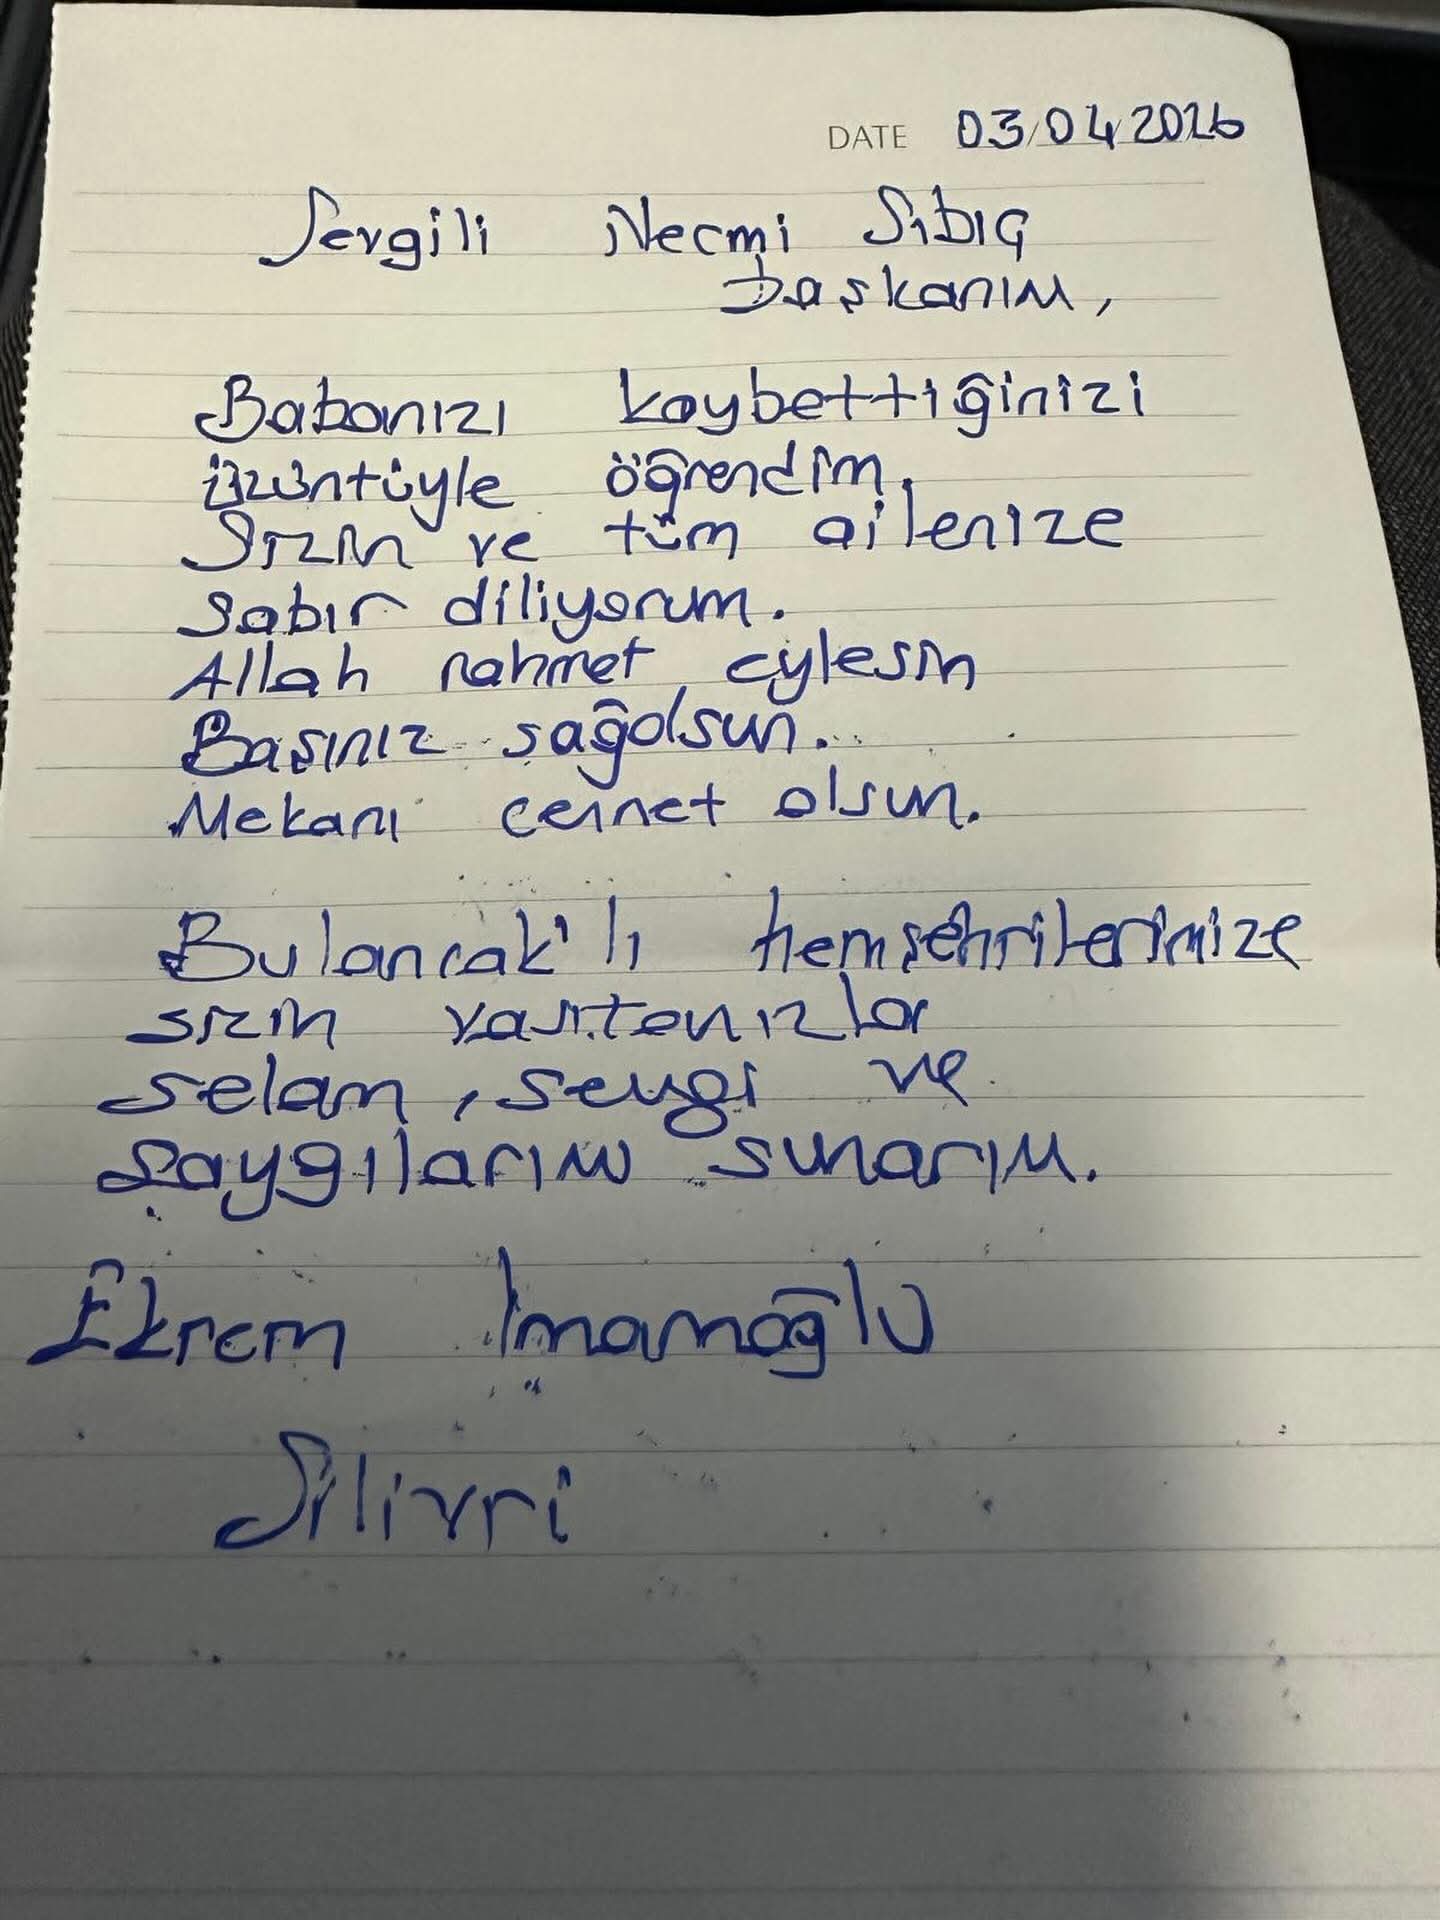 DATE 03/04/2026
Sevgili Necmi Sıbıç
başkanım,
Babanızı kaybettiğinizi
üzüntüyle öğrendim.
Sizin ve tüm ailenize
sabır diliyorum.
Allah rahmet eylesin
Başınız sağolsun.
Mekanı cennet olsun.
Bulancak'lı hemşehrilerimize
sizin vasıtanızla
selam, sevgi ve
saygılarımı sunarım.
Ekrem İmamoğlu
Silivri